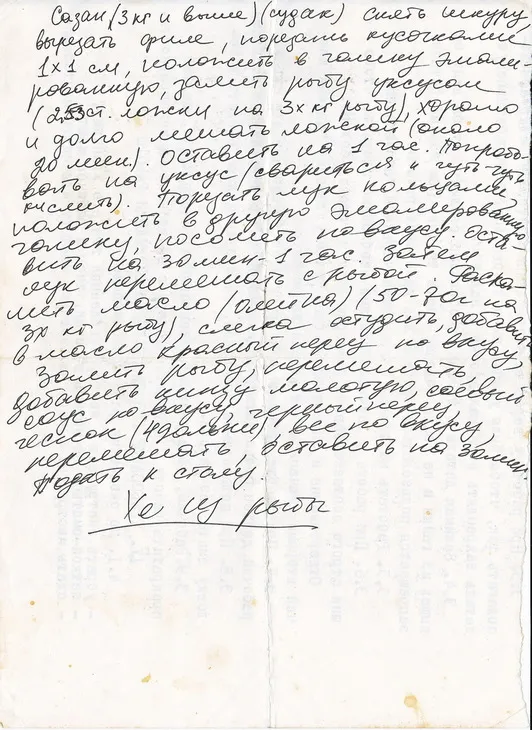 Сазан (3 кг и выше) (судак) снять шкуру,
вырезать филе, порезать кусочками
1х1 см, положить в чашку эмали-
рованную, залить рыбу уксусом
(2,5 ст. ложки на 3х кг рыбы), хорошо
и долго мешать ложкой (около
20 мин.). Оставить на 1 час. Попробо-
вать на уксус (свариться и чуть-чуть
кислить). Порезать лук кольцами,
положить в другую эмалированную
чашку, посолить по вкусу. Оста-
вить на 30 мин - 1 час. Затем
лук перемешать с рыбой. Раска-
лить масло (олейна) (50-70г на
3х кг рыбы), слегка остудить, добавить
в масло красный перец по вкусу,
Залить рыбу, перемешать,
добавить кинзу молотую, соевый
соус по вкусу, черный перец,
чеснок (4 дольки) все по вкусу,
перемешать, оставить на 30 мин.
Подать к столу.
Хе из рыбы